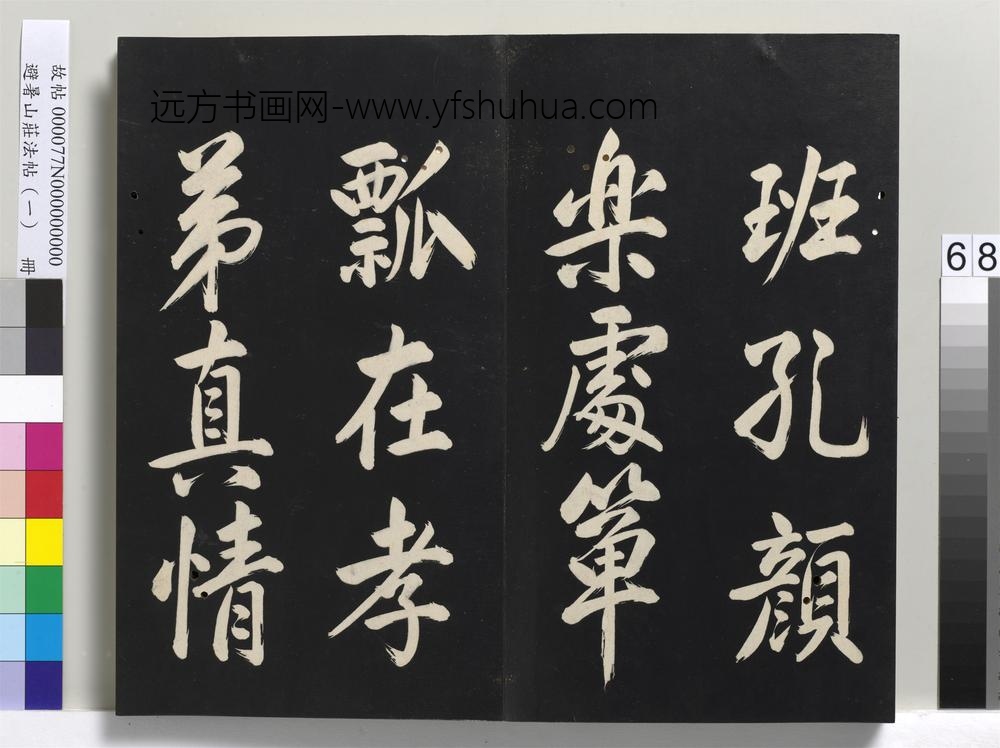 班孔顏
樂處簞
瓢在孝
弟真情
远方书画网-www.yfshuhua.com
故帖 000077N000000000
避暑山莊法帖(一) 冊
68